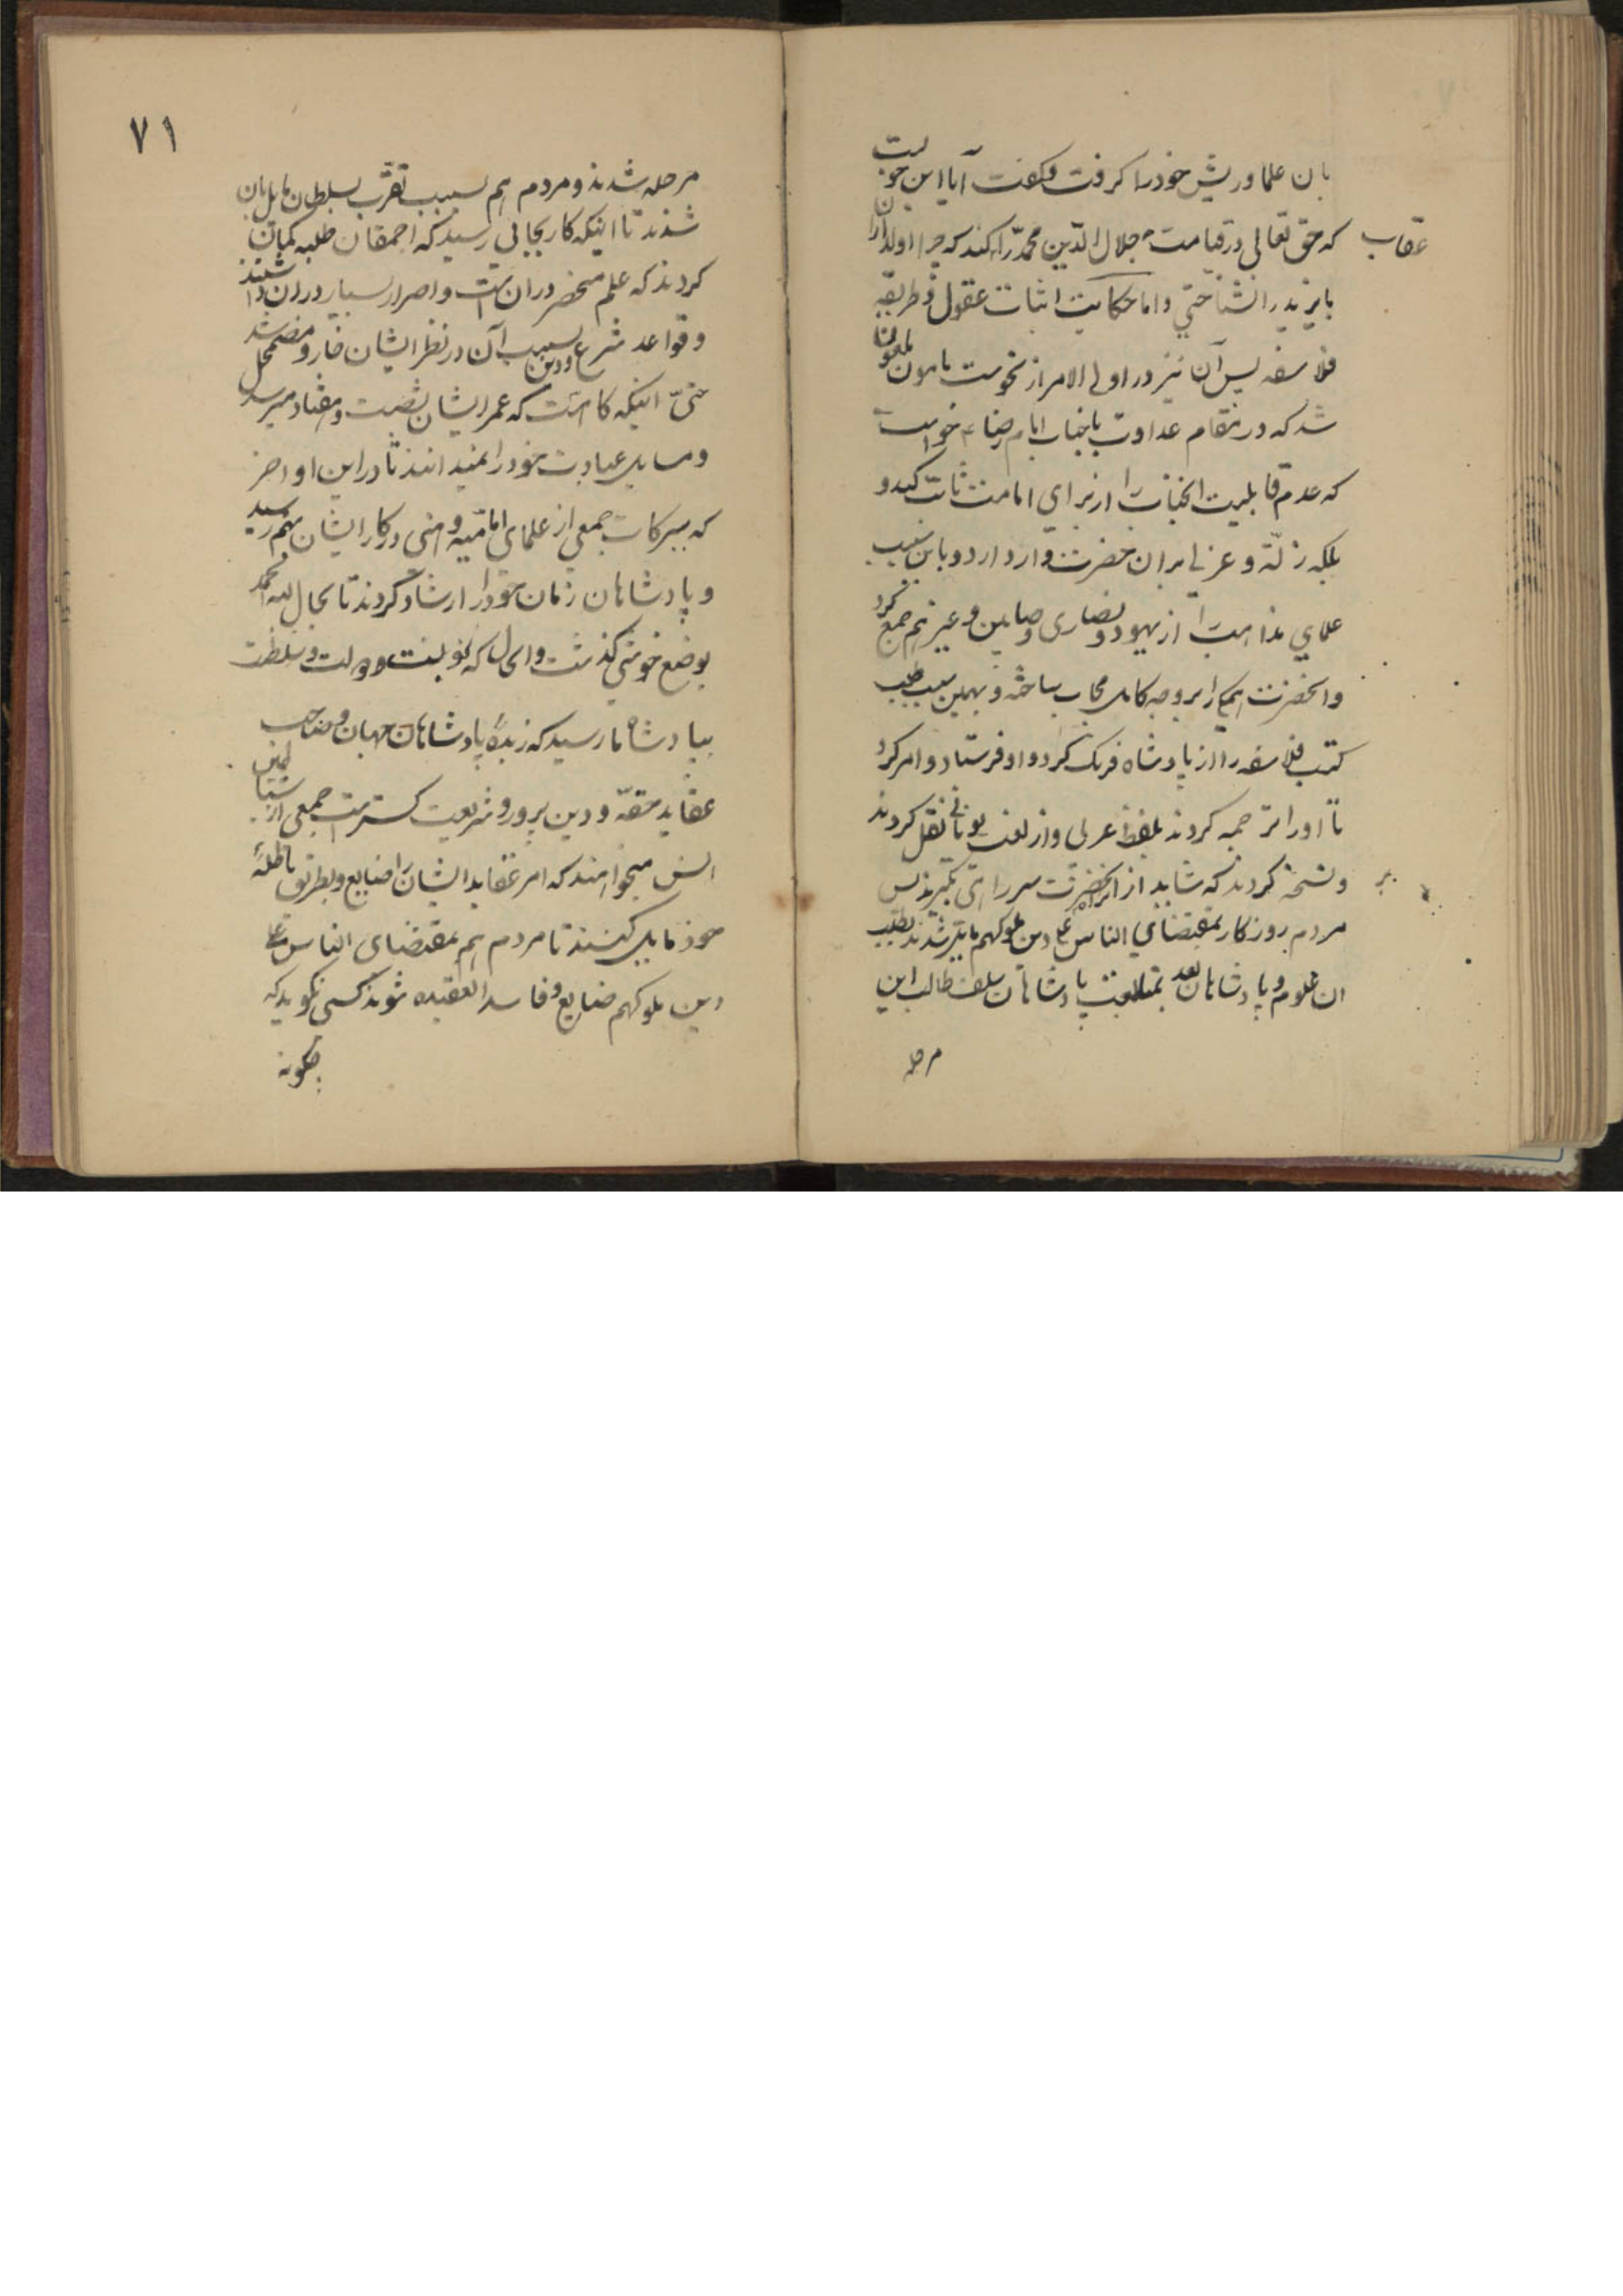 بان علما وریش خود را کرفت و کفت آیا این خوبست
که حق تعالی در قیامت جلال الدین محمد را کند که چرا اولاد ان
عقاب
بایزید را نشناختی و اما حکایت اثبات عقول و طریقه
فلاسفه پس آن نیز در اول الامر از نحوست مامون ملعون
شد که در مقام عداوت با جناب امام رضا ع خواست
که عدم قابلیت انجناب را از برای امامت ثابت کند و
بلکه زلّة و عزلی بران حضرت وارد ارد و باین سبب
علمای مذاهب را از یهود و نصاری و صابین و غیرهم جمع کرد
وانحضرت همکی را بر وجه کامل مجاب ساخته و بهمین سبب طلب
کتب فلاسفه را از پادشاه فرنک کرد و او فرستاد و امر کرد
تا اورا ترجمه کردند بلفظ عربی و از لغت یونانی نقل کردند
ونسخه کردند که شاید از انحضرت سر راهی بگیرند پس
مردم روزکار بمقتضای الناس علی دین ملوکهم مایل شدند بطلب
ان علوم و پادشاهان بعد بمتابعت پادشاهان سلف طالب این
مرحله
۷۱
مرحله شدند و مردم هم بسبب تقرّب بسلطان مایل بان
شدند تا اینکه کار بجائی رسید که احمقان طلبه کمان
کردند که علم منحصر در ان است و اصرار بسیار در ان داشتند
وقواعد شرع و دین بسبب آن در نظر ایشان خار و مضمحل شد
حتیّ اینکه کاهست که عمر ایشان بشصت و هفتاد میرسد
ومسایل عبادت خود را نمیدانند تا در این اواخر
که ببرکات جمعی از علمای امامیه وهنی در کار ایشان بهم رسید
و پادشاهان زمان خود را ارشاد کردند تا بحال لله الحمد
بوضع خوشی کذشت والحال که نوبت دولت و سلطنت
بپادشاه ما رسید که زبدهٔ پادشاهان جهان و صاحب
عقاید حقه و دین پرور و شریعت کستر است جمعی از شیاطین
انس میخواهند که امر عقاید ایشان را ضایع و بطریق باطلهٔ
خود مایل کنند تا مردم هم بمقتضای الناس علی
دین ملوکهم ضایع و فاسد العقیده شوند کسی نکوید که
چکونه